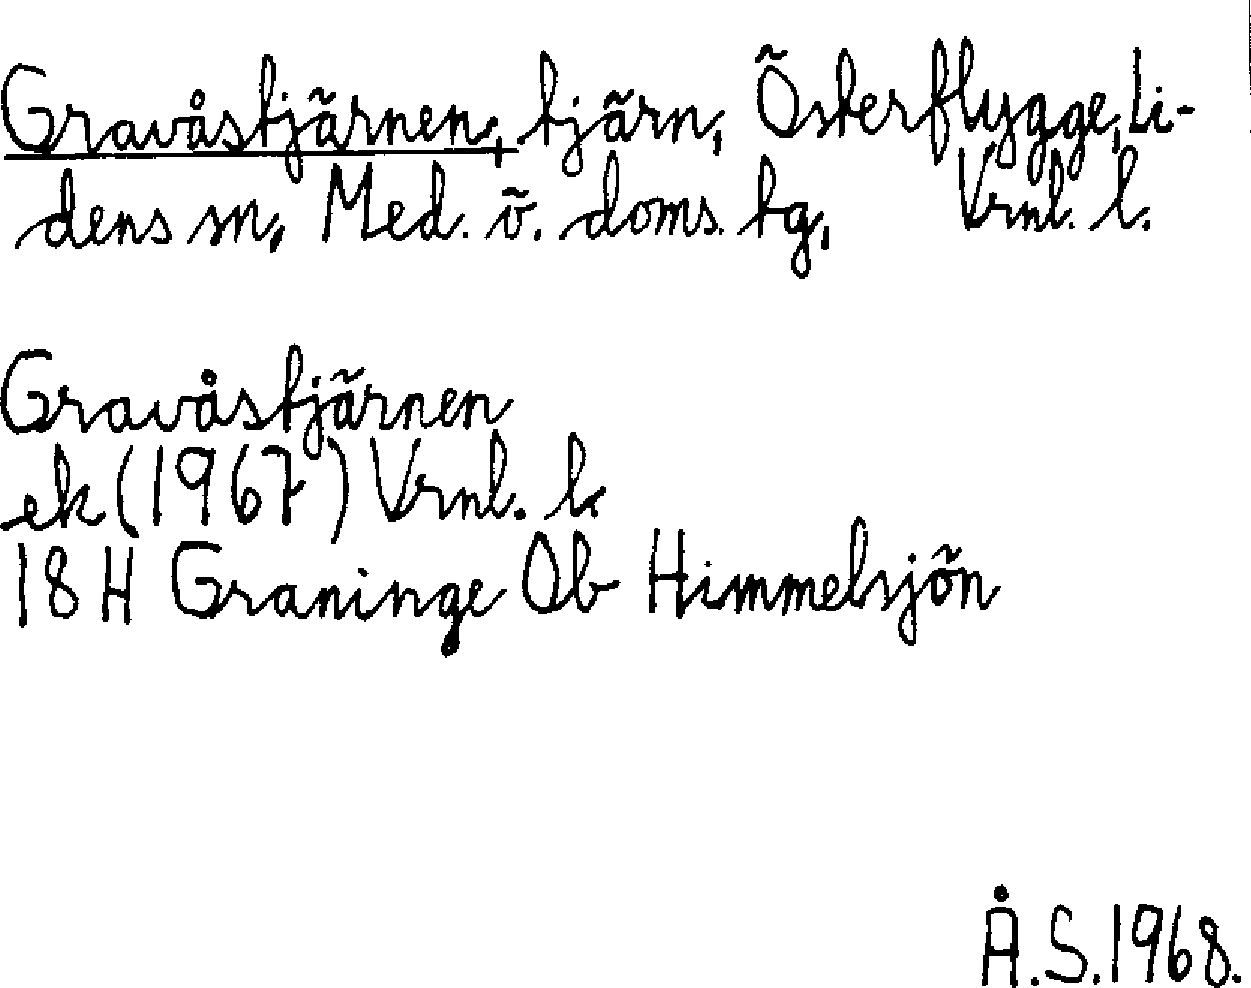 Gravåstjärnen, tjärn, Österflygge, Li-
dens sn, Med. ö. doms. tg, Vrml. l.
Gravåstjärnen
ek (1967) Vrml. l.
18 H Graninge Ob Himmelsjön
Å.S.1968.